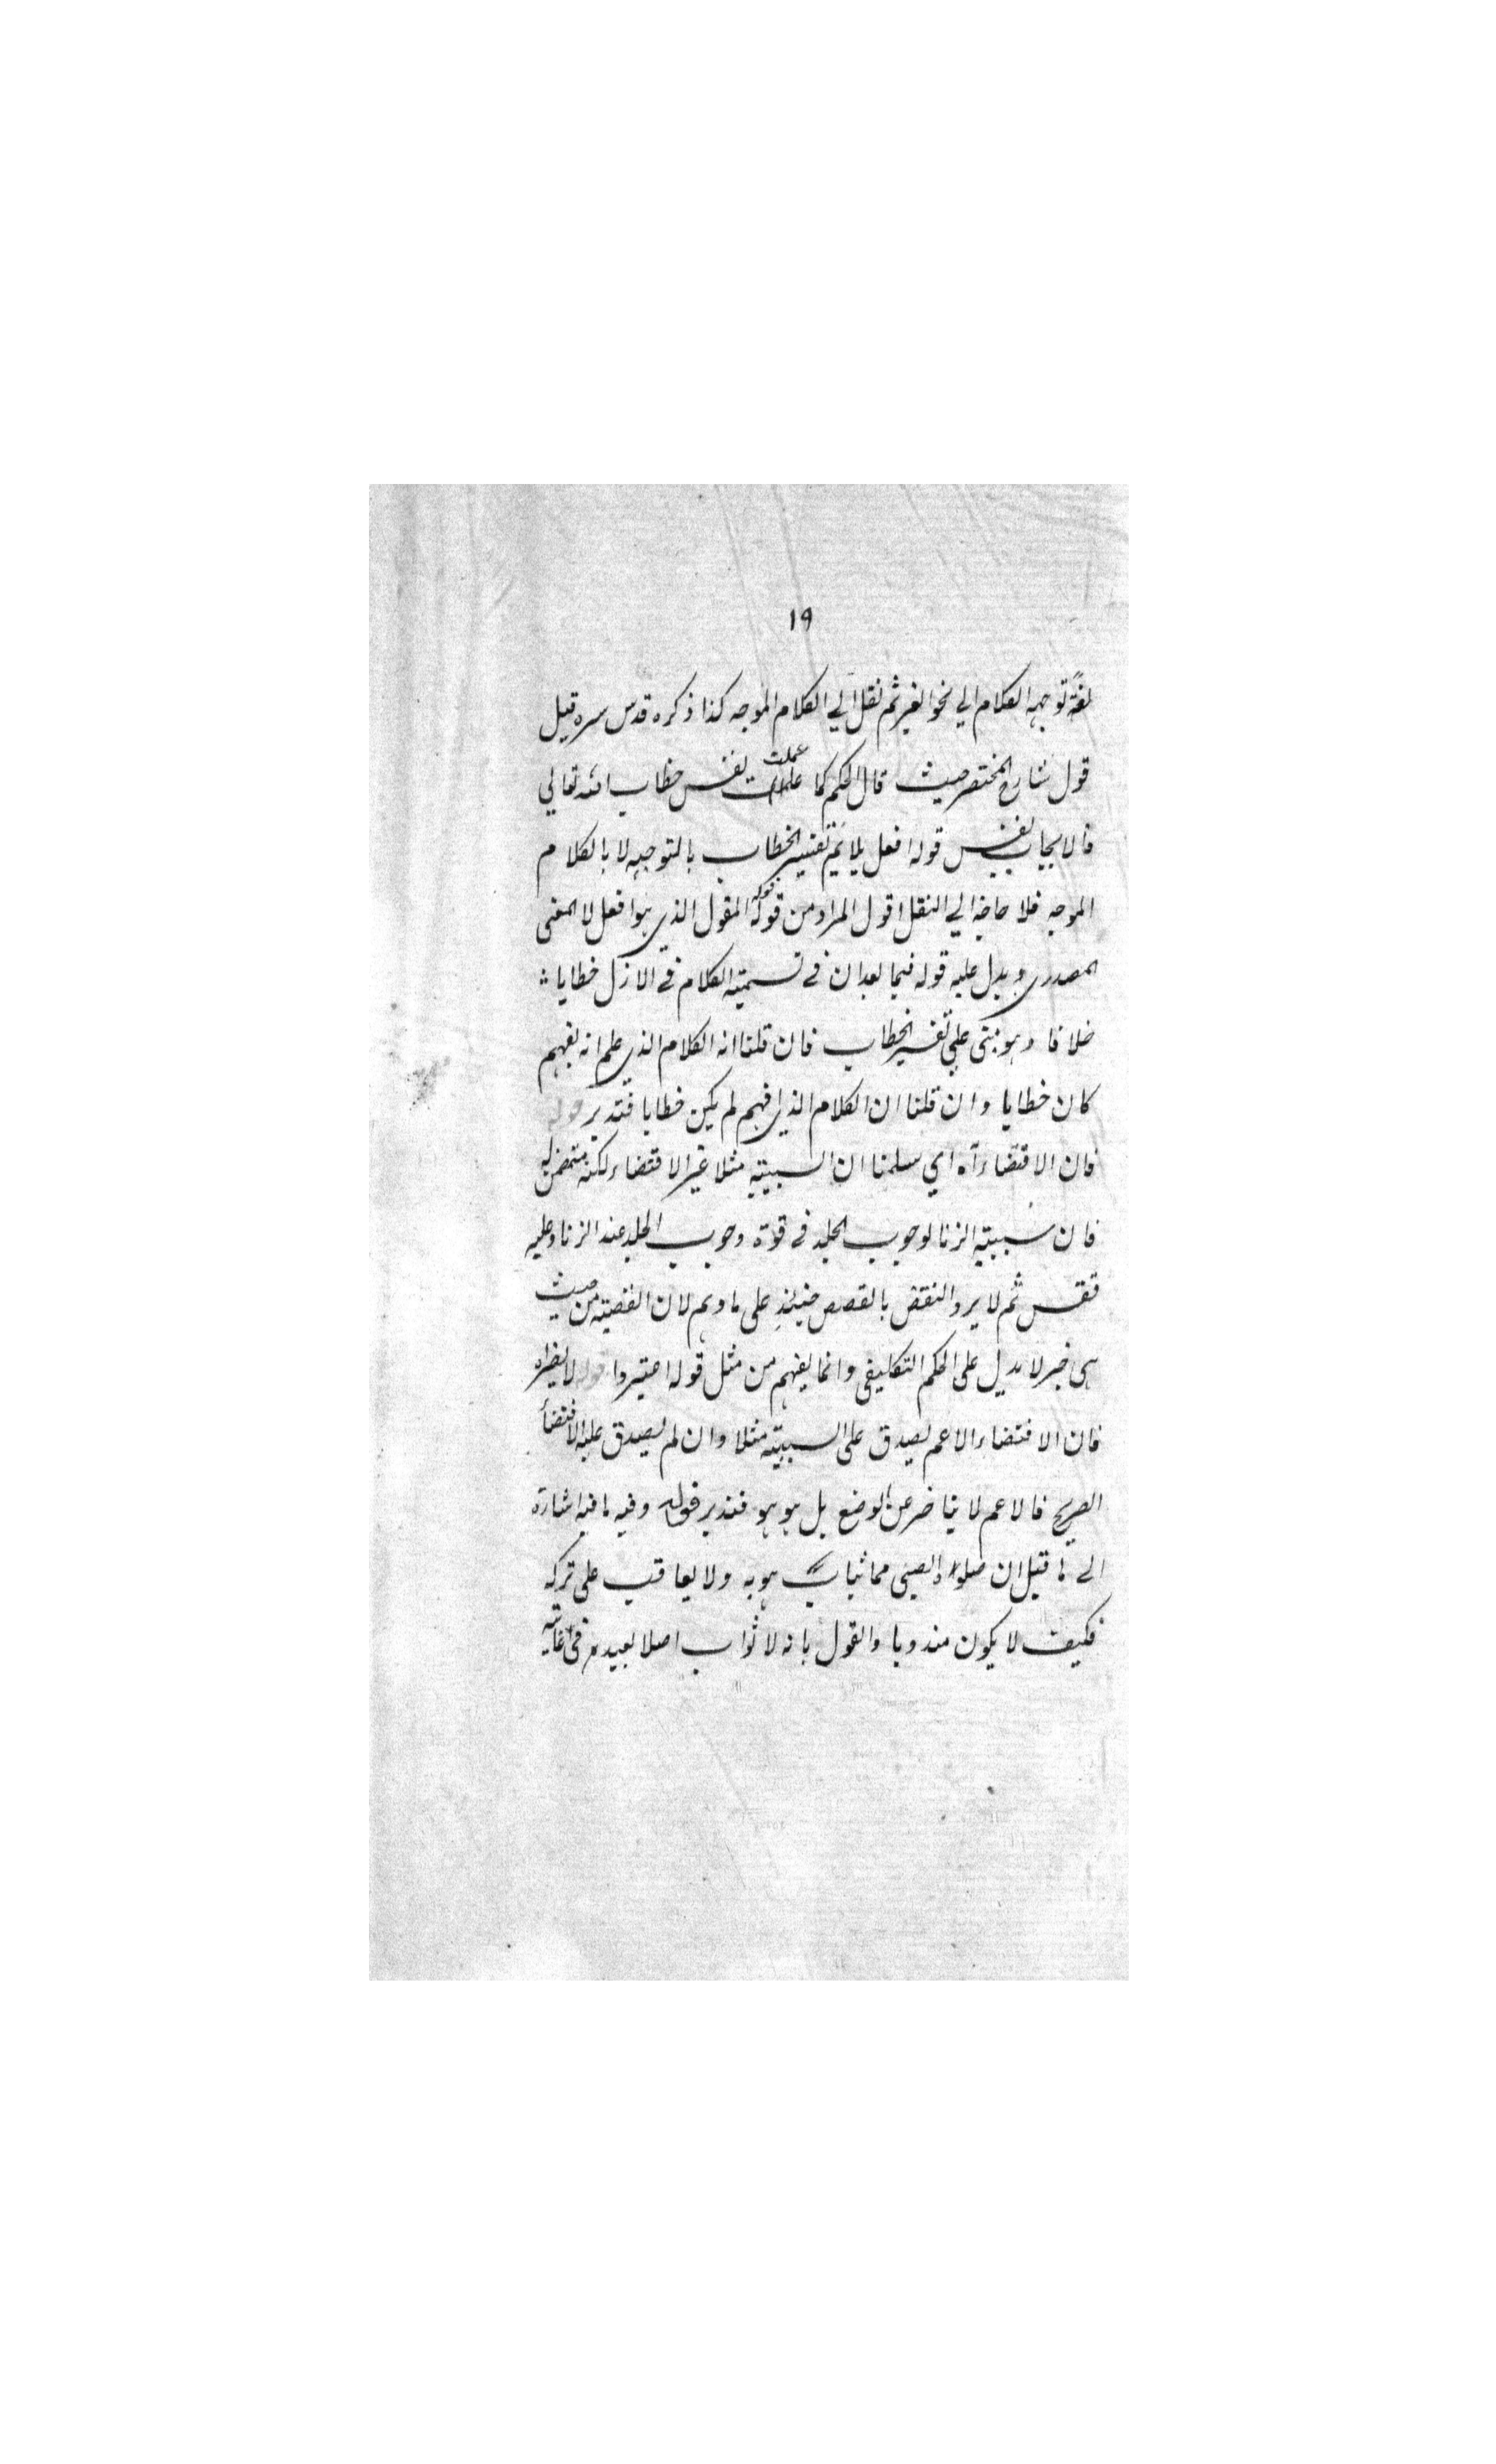 ١٩
لغةً توجيه الكلام الي نحو الغير ثم نقل الي الكلام الموجه كذا ذكره قدس سره قيل
قول شارح المختصر حيث قال الحكم كما علمت نفس خطاب الله تعالي
فالايجاب نفس قوله افعل يلائم تفسير الخطاب بالتوجيه لا بالكلام
الموجه فلا حاجة الي النقل اقول المراد من قوله قوله المقول الذي هو افعل لا المعنى
المصدري ويدل عليه قوله فيما بعد ان في تسمية الكلام في الازل خطابا
خلافا وهو مبتنى علي تفسير الخطاب فان قلنا انه الكلام الذي علم انه يفهم
كان خطابا وان قلنا ان الكلام الذي افهم لم يكن خطابا فتدبر قوله
فان الاقتضاء آه اي سلمنا ان السببية مثلا غير الاقتضاء لكنه متضمن له
فان سببية الزنا لوجوب الجلد في قوة وجوب الجلد عند الزنا وعليه
فقس ثم لا يرد النقض بالقصص حينئذٍ على ما وهم لان القصة من حيث
هي خبر لا يدل على الحكم التكليفي وانما يفهم من مثل قوله اعتبروا قوله لا يضر اه
فان الاقتضاء الاعم يصدق على السببية مثلا وان لم يصدق عليه الاقتضاء
الصريح فالاعم لا يتاخر عن الوضع بل هو هو فتدبر قوله وفيه ما فيه اشارة
الى ما قيل ان صلوة الصبي مما يثاب هو به ولا يعاقب على تركه
فكيف لا يكون مندوبا والقول بانه لا ثواب اصلا بعيد في غاية